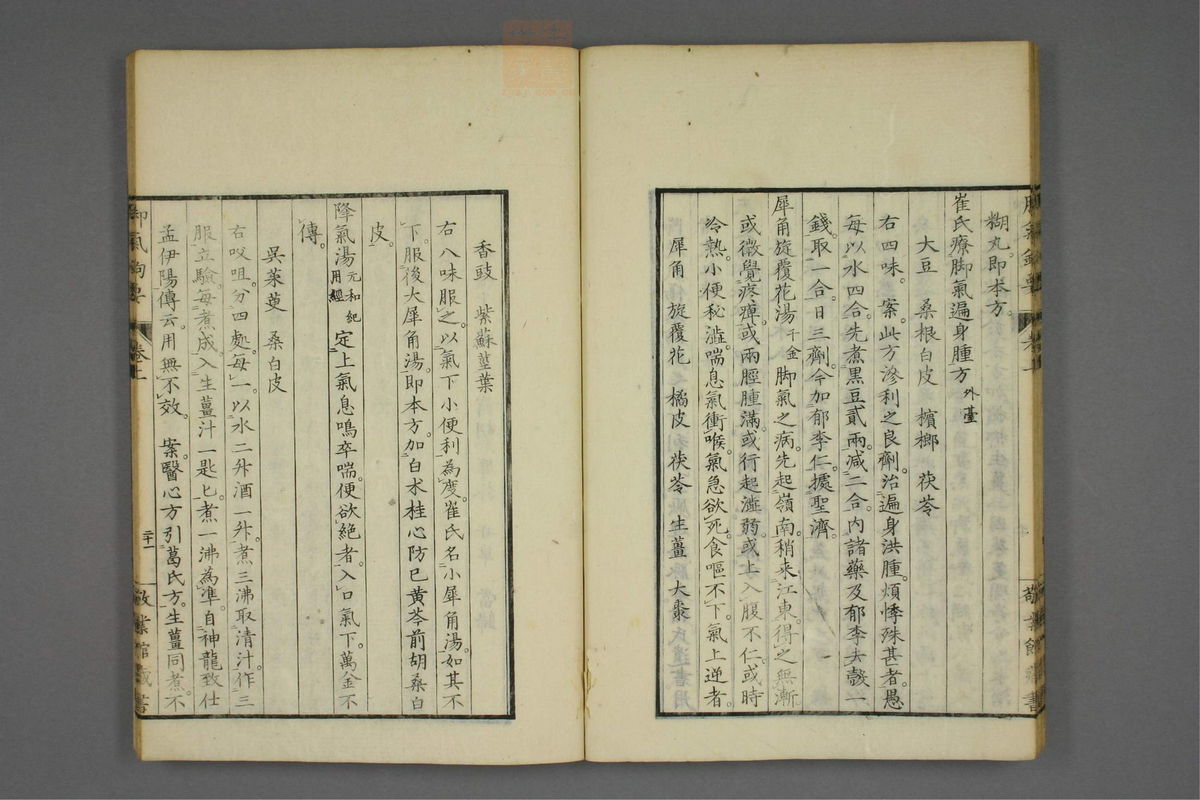 糊丸即本方。
崔氏療脚氣遍身腫方外臺
大豆 桑根白皮 檳榔 茯苓
右四味。案此方滲利之良劑。治遍身洪腫。煩悸殊甚者。愚
每以水四合。先煮黑豆貳兩。減二合。內諸藥及郁李去殼一
錢。取一合。日三劑。今加郁李仁。據聖濟。
犀角旋覆花湯千金脚氣之病。先起嶺南。稍來江東。得之無漸
或微覺疼痺。或兩脛腫滿。或行起澁弱。或上入腹不仁。或時
冷熱。小便秘澁。喘息氣衝喉。氣急欲死。食嘔不下。氣上逆者。
犀角 旋覆花 橘皮 茯苓 生薑 大棗
香豉 紫蘇莖葉
右八味服之。以氣下小便利為度。崔氏名小犀角湯。如其不
下。服後大犀角湯。即本方。加白朮桂心防巳黃芩前胡桑白
皮。
降氣湯元和紀用經定上氣息鳴卒喘。便欲絕者。入口氣下。萬金不
傳。
吳茱萸 桑白皮
右㕮咀。分四處。每一。以水二升酒一升。煮三沸。取清汁。作三
服。立驗。每煮成。入生薑汁一匙匕。煮一沸為準。自神龍致仕
孟伊陽傳云。用無不效。 案醫心方引葛氏方。生薑同煮。不
脚氣鉤要 卷上 二十一 敬業館藏書